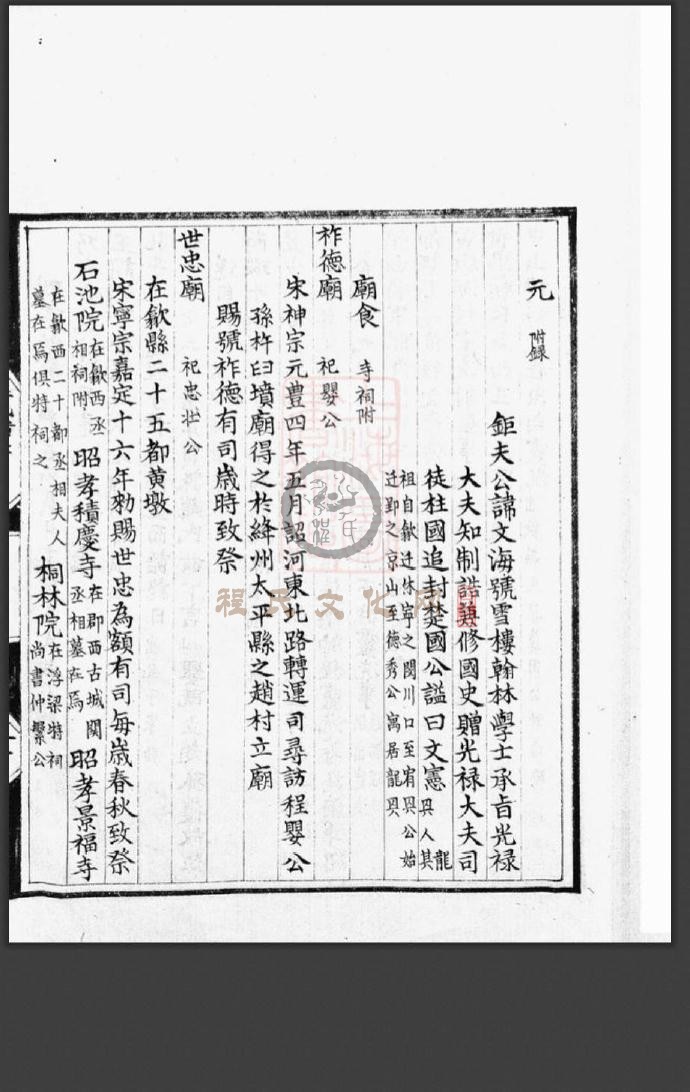 元 附録
鉅夫公諱文海號雪樓翰林學士承旨光禄
大夫知制誥兼修國史贈光禄大夫司
徒柱國追封楚國公謚曰文憲 龍
具人其
祖自歙迁休寧之閔川口至宥具公始
迁郢之京山至德秀公寓居龍具
廟食 寺祠附
祚德廟 祀嬰公
宋神宗元豊四年五月詔河東北路轉運司尋訪程嬰公
孫杵臼墳廟得之於絳州太平縣之趙村立廟
賜號祚德有司歲時致祭
世忠廟 祀忠壮公
在歙縣二十五都黄墩
宋寧宗嘉定十六年勑賜世忠為額有司每歲春秋致祭
石池院 在歙西丞相祠附 昭孝積慶寺 在郡西古城関丞相墓在焉 昭孝景福寺
在歙西二十都丞相夫人墓在焉俱特祠之 桐林院 在浮梁特祠尚書仲繄公
程氏文化网